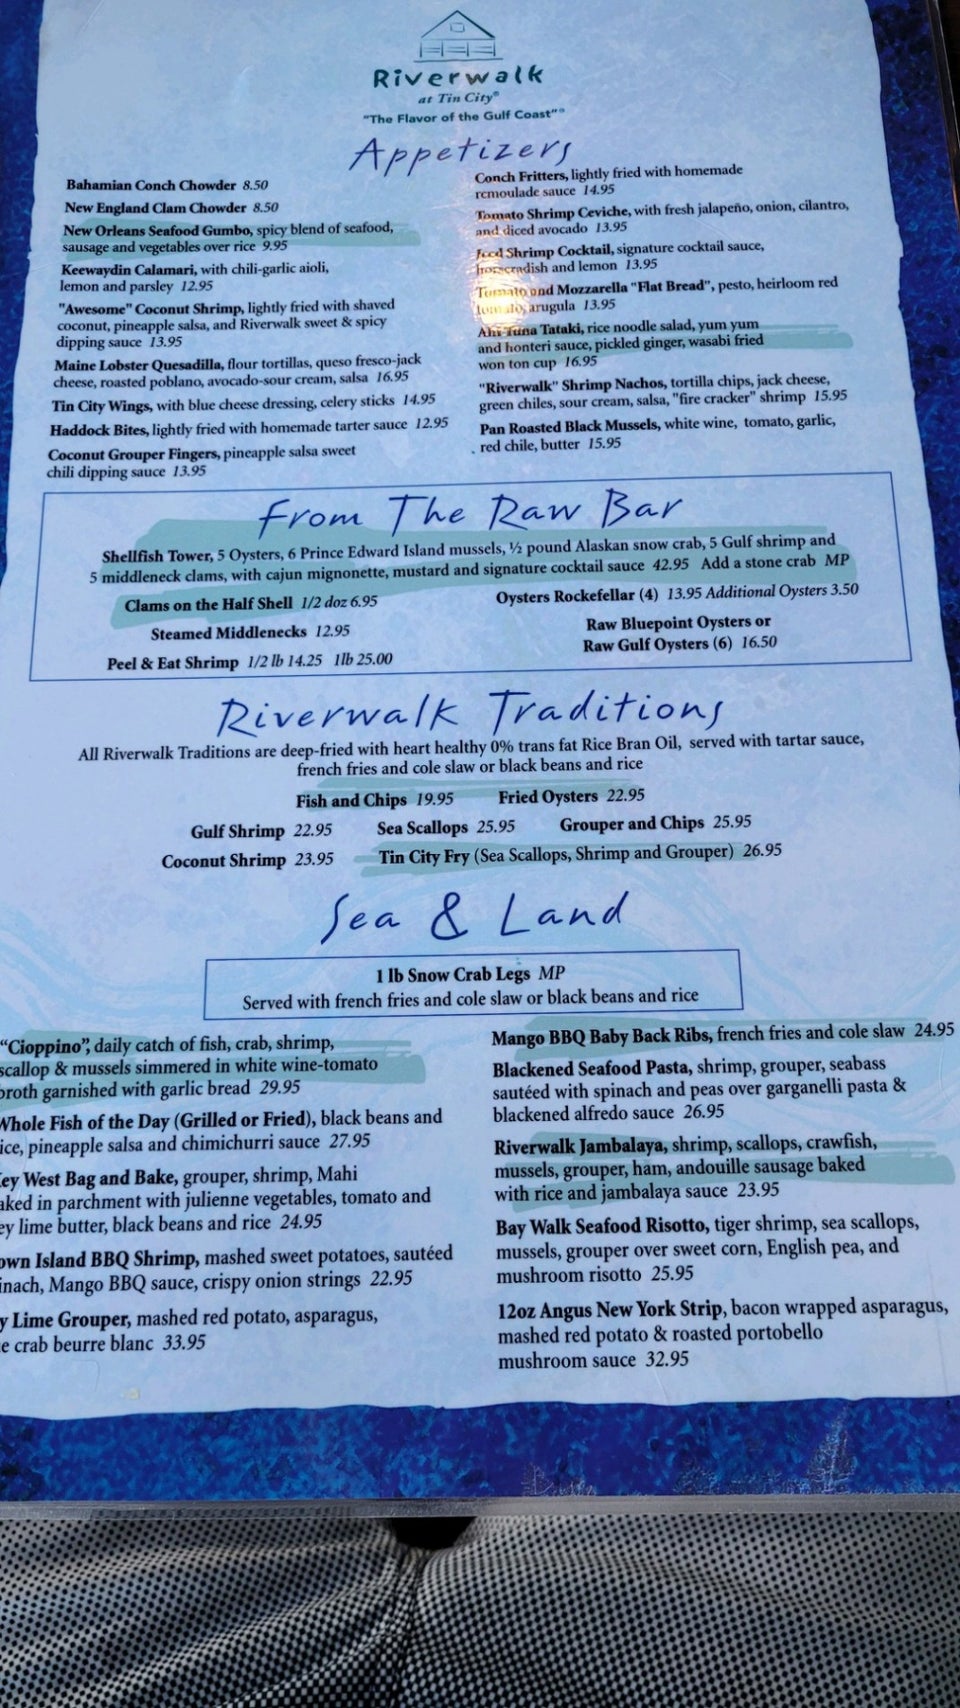 Riverwalk
at Tin City®
"The Flavor of the Gulf Coast"®
Appetizers
Bahamian Conch Chowder 8.50
New England Clam Chowder 8.50
New Orleans Seafood Gumbo, spicy blend of seafood,
sausage and vegetables over rice 9.95
Keewaydin Calamari, with chili-garlic aioli,
lemon and parsley 12.95
"Awesome" Coconut Shrimp, lightly fried with shaved
coconut, pineapple salsa, and Riverwalk sweet & spicy
dipping sauce 13.95
Maine Lobster Quesadilla, flour tortillas, queso fresco-jack
cheese, roasted poblano, avocado-sour cream, salsa 16.95
Tin City Wings, with blue cheese dressing, celery sticks 14.95
Haddock Bites, lightly fried with homemade tarter sauce 12.95
Coconut Grouper Fingers, pineapple salsa sweet
chili dipping sauce 13.95
Conch Fritters, lightly fried with homemade
remoulade sauce 14.95
Tomato Shrimp Ceviche, with fresh jalapeño, onion, cilantro,
and diced avocado 13.95
Iced Shrimp Cocktail, signature cocktail sauce,
horseradish and lemon 13.95
Tomato and Mozzarella "Flat Bread", pesto, heirloom red
tomato, arugula 13.95
Ahi Tuna Tataki, rice noodle salad, yum yum
and honteri sauce, pickled ginger, wasabi fried
won ton cup 16.95
"Riverwalk" Shrimp Nachos, tortilla chips, jack cheese,
green chiles, sour cream, salsa, "fire cracker" shrimp 15.95
Pan Roasted Black Mussels, white wine, tomato, garlic,
red chile, butter 15.95
From The Raw Bar
Shellfish Tower, 5 Oysters, 6 Prince Edward Island mussels, ½ pound Alaskan snow crab, 5 Gulf shrimp and
5 middleneck clams, with cajun mignonette, mustard and signature cocktail sauce 42.95 Add a stone crab MP
Clams on the Half Shell 1/2 doz 6.95
Steamed Middlenecks 12.95
Peel & Eat Shrimp 1/2 lb 14.25 1lb 25.00
Oysters Rockefellar (4) 13.95 Additional Oysters 3.50
Raw Bluepoint Oysters or
Raw Gulf Oysters (6) 16.50
Riverwalk Traditions
All Riverwalk Traditions are deep-fried with heart healthy 0% trans fat Rice Bran Oil, served with tartar sauce,
french fries and cole slaw or black beans and rice
Fish and Chips 19.95 Fried Oysters 22.95
Gulf Shrimp 22.95 Sea Scallops 25.95 Grouper and Chips 25.95
Coconut Shrimp 23.95 Tin City Fry (Sea Scallops, Shrimp and Grouper) 26.95
Sea & Land
1 lb Snow Crab Legs MP
Served with french fries and cole slaw or black beans and rice
"Cioppino", daily catch of fish, crab, shrimp,
scallop & mussels simmered in white wine-tomato
broth garnished with garlic bread 29.95
Whole Fish of the Day (Grilled or Fried), black beans and
ice, pineapple salsa and chimichurri sauce 27.95
ey West Bag and Bake, grouper, shrimp, Mahi
aked in parchment with julienne vegetables, tomato and
ey lime butter, black beans and rice 24.95
own Island BBQ Shrimp, mashed sweet potatoes, sautéed
inach, Mango BBQ sauce, crispy onion strings 22.95
y Lime Grouper, mashed red potato, asparagus,
e crab beurre blanc 33.95
Mango BBQ Baby Back Ribs, french fries and cole slaw 24.95
Blackened Seafood Pasta, shrimp, grouper, seabass
sautéed with spinach and peas over garganelli pasta &
blackened alfredo sauce 26.95
Riverwalk Jambalaya, shrimp, scallops, crawfish,
mussels, grouper, ham, andouille sausage baked
with rice and jambalaya sauce 23.95
Bay Walk Seafood Risotto, tiger shrimp, sea scallops,
mussels, grouper over sweet corn, English pea, and
mushroom risotto 25.95
12oz Angus New York Strip, bacon wrapped asparagus,
mashed red potato & roasted portobello
mushroom sauce 32.95